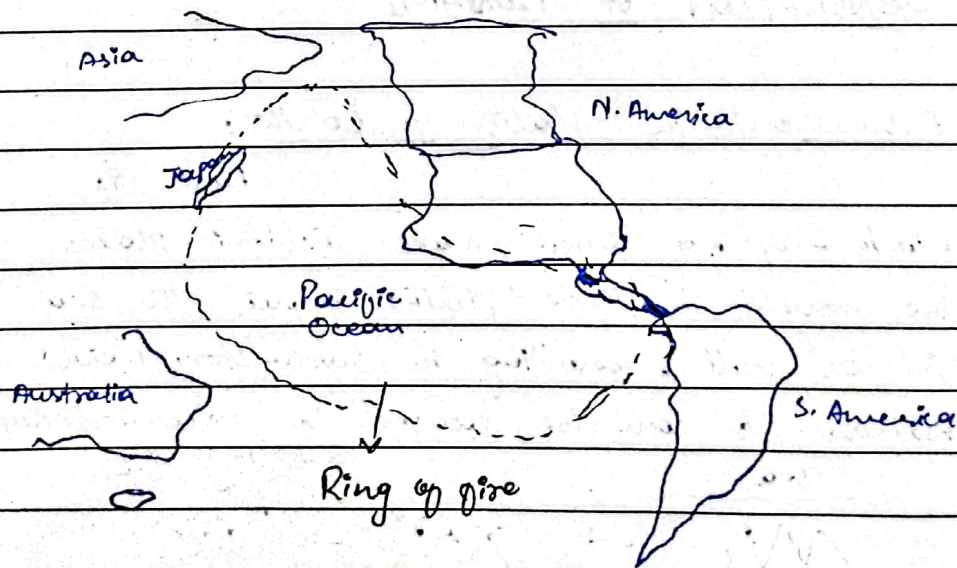 Asia
N. America
Japan
Pacific
Ocean
Australia
S. America
Ring of fire